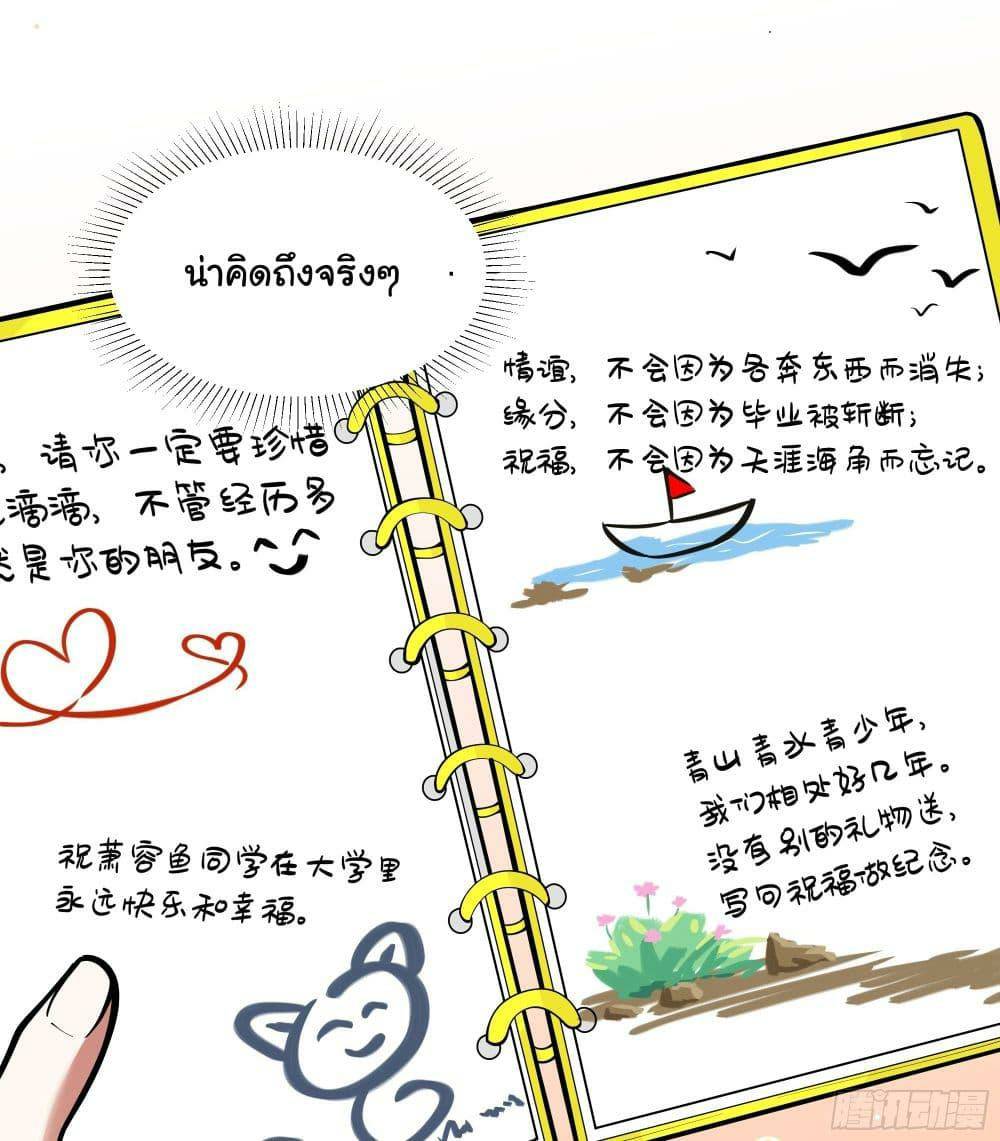 น่าคิดถึงจริงๆ
, 请你一定要珍惜
滴滴, 不管经历多
是你的朋友。
情谊, 不会因为各奔东西而消失;
缘分, 不会因为毕业被斩断;
祝福, 不会因为天涯海角而忘记。
青山青水青少年,
我们相处好几年。
没有别的礼物送,
写句祝福做纪念。
祝萧容鱼同学在大学里
永远快乐和幸福。
腾讯动漫